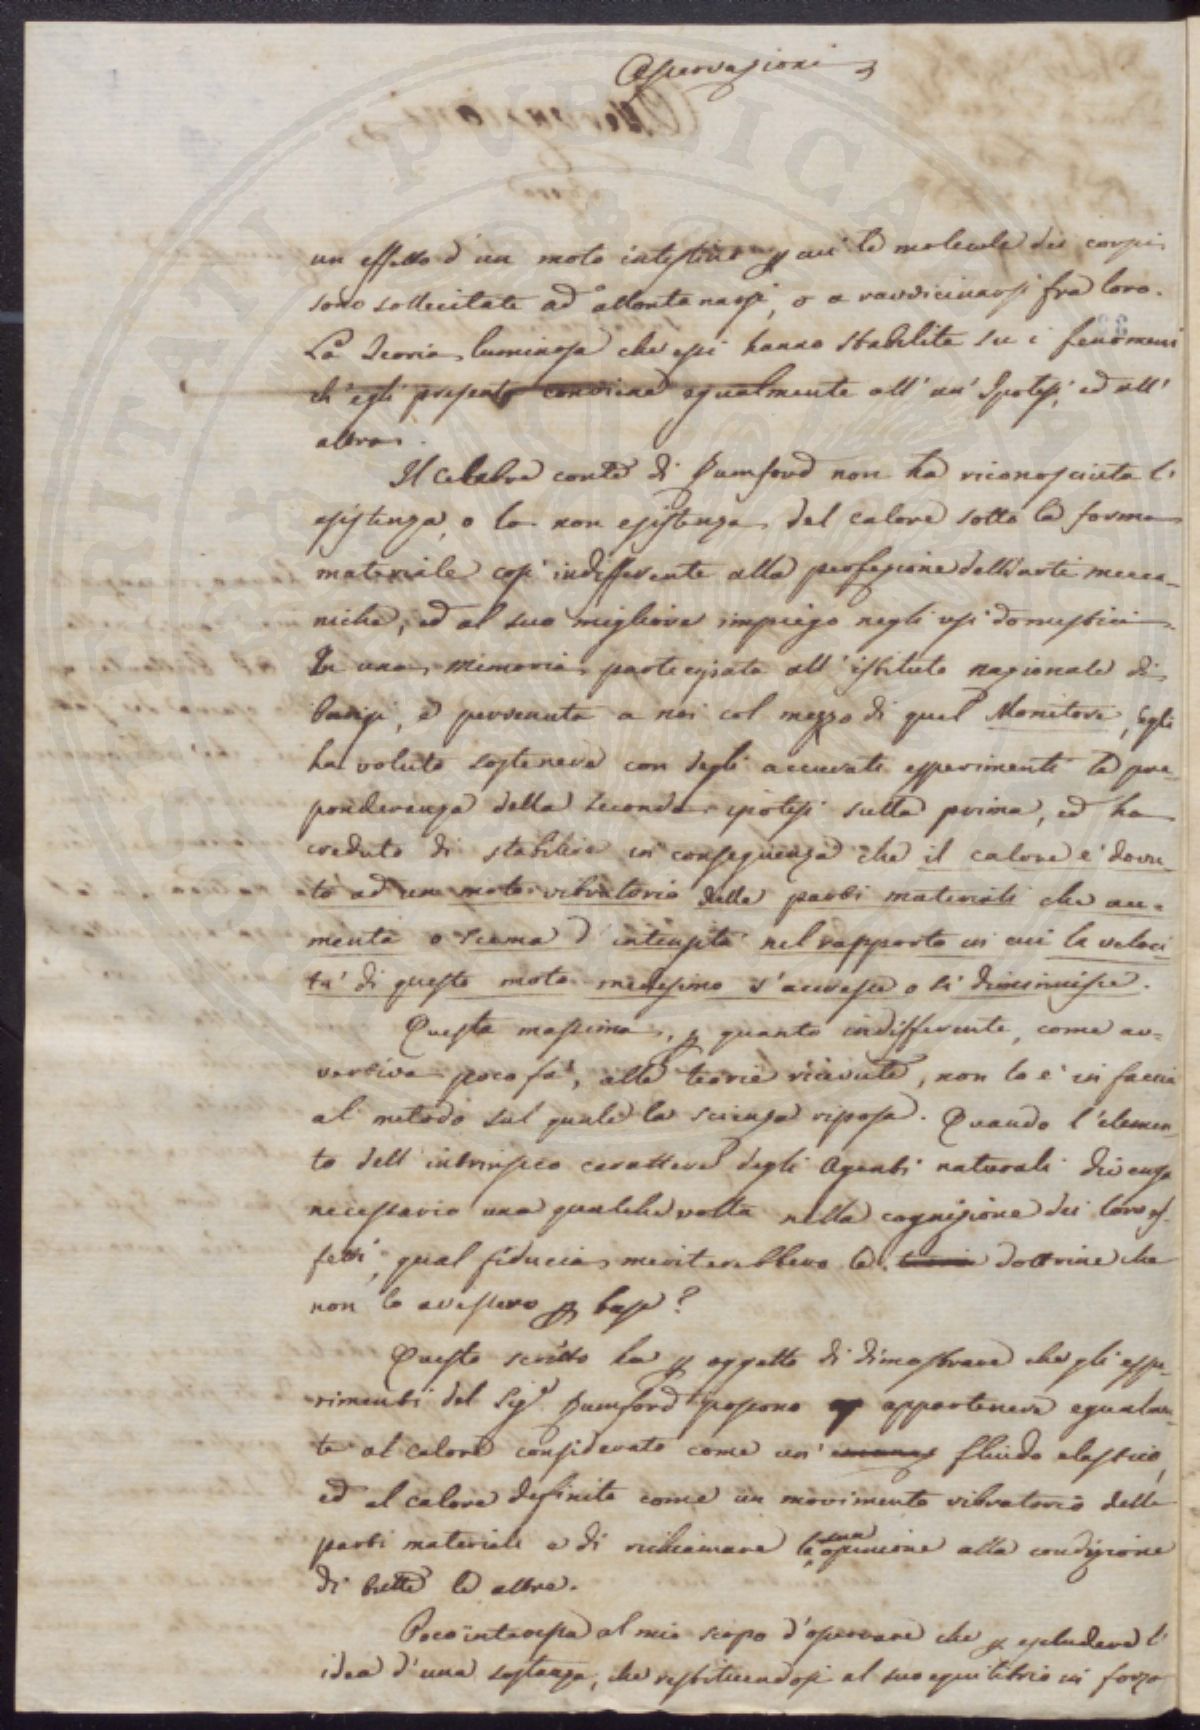 Osservazioni
un effetto d'un moto intestino p cui le molecole dei corpi
sono sollecitate ad allontanarsi, o a ravvicinarsi fra loro.
La Teoria luminosa che essi hanno stabilita su i fenomeni
ch'egli presenta conviene egualmente all'un'Ipotesi, ed all'
altra.
Il celebre conte di Rumford non ha riconosciuta l'
esistenza, o la non esistenza del calore sotto la forma
materiale così indifferente alla perfezione dell'arti mecca-
niche, ed al suo migliore impiego negli usi domestici.
In una memoria partecipata all'istituto nazionale di
Parigi, e pervenuta a noi col mezzo di quel Monitore, Egli
ha voluto sostenere con degli accurati esperimenti la pre-
ponderenza della seconda ipotesi sulla prima, ed ha
creduto di stabilire in conseguenza che il calore è dovu-
to ad un moto vibratorio delle parti materiali che au-
menta o scema d'intensità nel rapporto in cui la veloci-
tà di questo moto medesimo s'accresce o si diminuisce.
Questa massima, p quanto indifferente, come av-
vertiva poco fa, alle teorie ricevute, non lo è in faccia
al metodo sul quale la scienza riposa. Quando l'elemen-
to dell'intrinseco carattere degli Agenti naturali divenga
necessario una qualche volta nella cognizione dei loro ef-
fetti, qual fiducia meriterebbero le dottrine che
non lo avessero p base?
Questo scritto ha p oggetto di dimostrare che gli espe-
rimenti del Sigr. Rumford possono appartenere egualmen-
te al calore considerato come un' fluido elastico,
ed al calore definito come un movimento vibratorio delle
parti materiali e di richiamare la sua opinione alla condizione
di tutte le altre.
Poco interessa al mio scopo d'osservare che p escludere l'
idea d'una sostanza, che restituendosi al suo equilibrio in forza